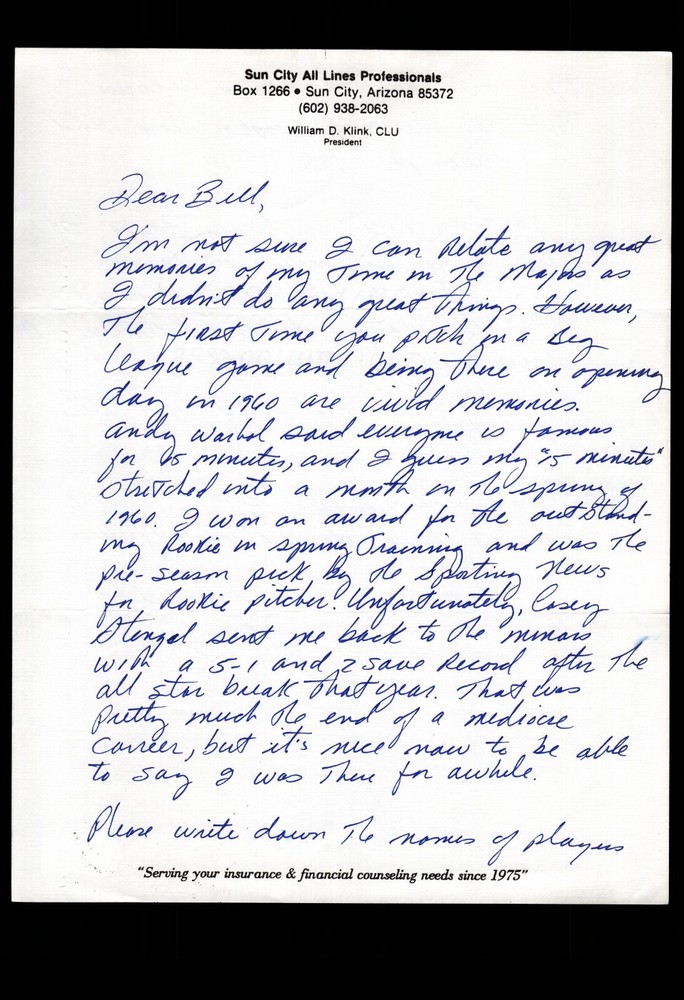 Sun City All Lines Professionals
Box 1266 • Sun City, Arizona 85372
(602) 938-2063
William D. Klink, CLU
President
Dear Bill,
I'm not sure I can relate any great
memories of my time in the Majors as
I didn't do any great things. However,
the first time you pitch in a Big
league game and being there on opening
day in 1960 are vivid memories.
Andy Warhol said everyone is famous
for 15 minutes, and I guess my "15 minutes"
stretched into a month in the spring of
1960. I won an award for the outstand-
ing Rookie in spring Training and was the
pre-season pick by the Sporting News
for Rookie pitcher. Unfortunately, Casey
Stengal sent me back to the minors
with a 5-1 and 2 save record after the
all star break that year. That was
pretty much the end of a mediocre
career, but it's nice now to be able
to say I was there for awhile.
Please write down the names of players
"Serving your insurance & financial counseling needs since 1975"